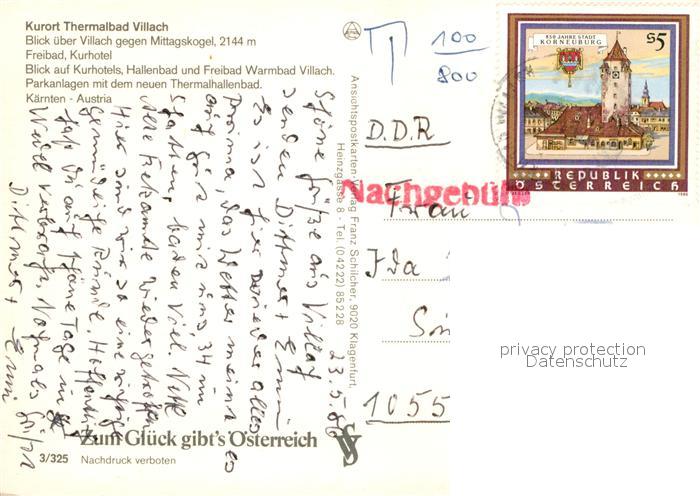 Kurort Thermalbad Villach
Blick über Villach gegen Mittagskogel, 2144 m
Freibad, Kurhotel
Blick auf Kurhotels, Hallenbad und Freibad Warmbad Villach.
Parkanlagen mit dem neuen Thermalhallenbad.
Kärnten - Austria
T 100
800
850 JAHRE STADT
KORNEUBURG
S5
REPUBLIK
ÖSTERREICH
D.D.R
Nachgebühr
Frau
Ida
1055
privacy protection
Datenschutz
Ansichtspostkarten-Verlag Franz Schilcher, 9020 Klagenfurt,
Heinzgasse 8 - Tel. (04222) 85228
23.5.86
Schöne Grüße aus Villach
senden Dittmar + Erni
Es ist hier wieder alles
prima, das Wetter meint es
auf gut mit uns 34 im
Schatten, baden viel. Nette
alte Bekannte wieder getroffen
Hier sind wir so eine richtige
gemütliche Runde. Hoffentlich
hast Du auch schöne Tage in
verbracht. Nochmals Grüße
Dittmar + Erni
Zum Glück gibt's Österreich
3/325 Nachdruck verboten